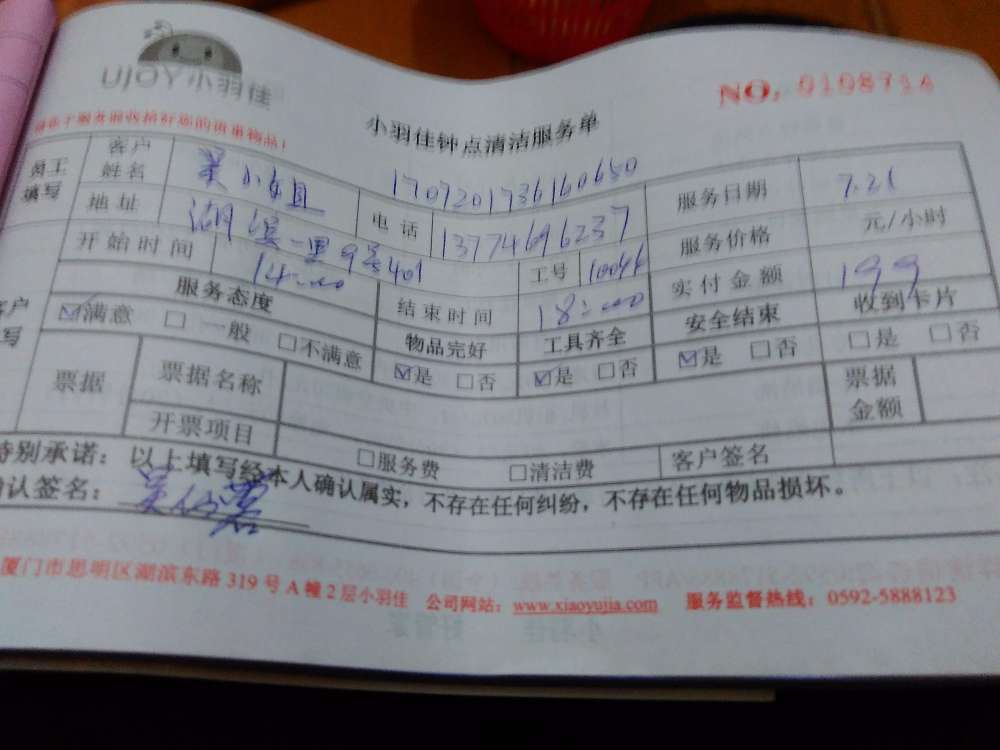 UJOY小羽佳
NO. 01087
小羽佳钟点清洁服务单
服务前请您保管好您的贵重物品!
员工填写 客户姓名 小姐 1707201736160650 服务日期 7.21
地址 湖滨一里9号401 电话 13774696237 服务价格 元/小时
开始时间 14:00 工号 实付金额 199
客户填写 服务态度 结束时间 18:00 安全结束 收到卡片
物品完好 工具齐全
☑满意 □一般 □不满意 ☑是 □否 ☑是 □否 ☑是 □否 □是 □否
票据 票据名称 票据金额
开票项目 □服务费 □清洁费 客户签名
特别承诺：以上填写经本人确认属实，不存在任何纠纷，不存在任何物品损坏。
确认签名：
厦门市思明区湖滨东路 319 号 A 幢 2 层小羽佳 公司网站：www.xiaoyujia.com 服务监督热线：0592-5888123